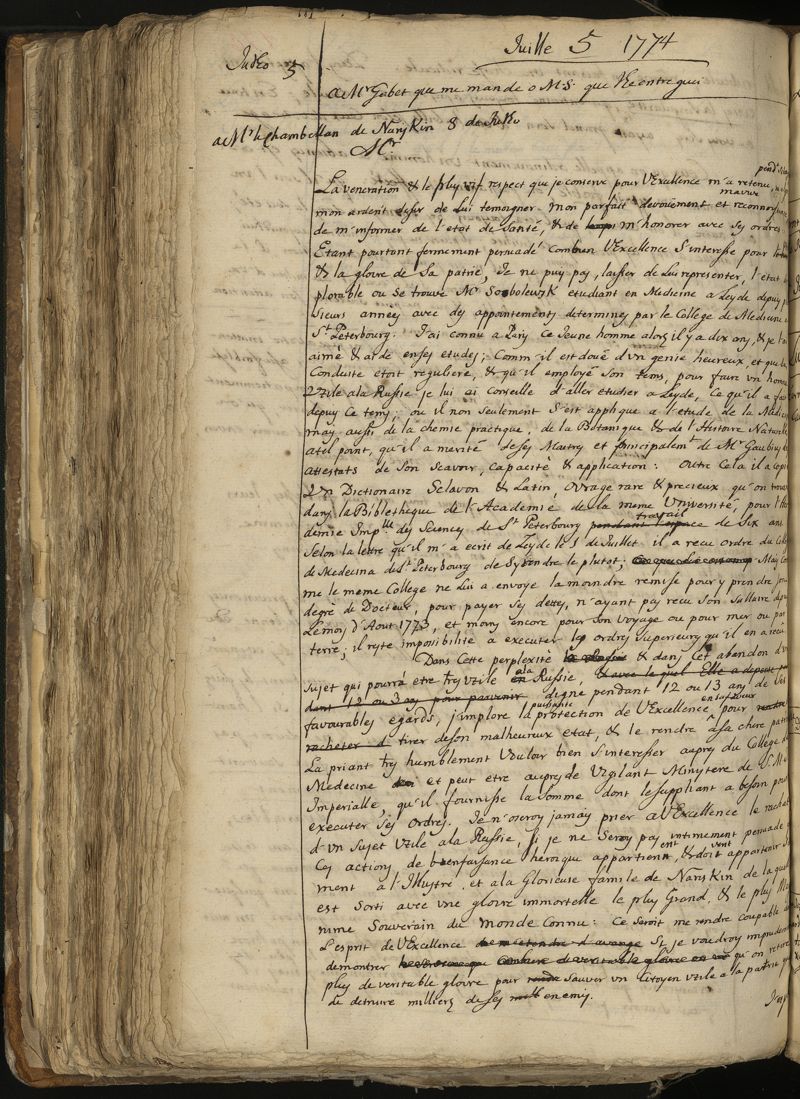 Juille 5 1774
Julto 5
a Mr Gabet que me mande o M.S. que
a Mr le Chambellan de Narjskin 8 de Julto
Mr
pendt
La veneration & le pluy vif respect que je conserve pour V Excellence m'a retenu,
mon ardent desir de Lui temoigner mon parfait devoiement et reconnois
de m'informer de l'etat de Santé, & de m'honorer avec Sej ordres
Etant pourtant fermement persuadé combien V Excellence S'interesse pour
& la gloire de Sa patrie, Je ne puy pay, laisser de Lui representer, l'etat
plorable ou Se trouve Mr Soboleusk etudiant en Medicine a Leyde depuy
sieurs anneej avec dej appointementj determinej par le College de Medicine
St Peterbourg. J'ai connu a Parij ce Jeune homme alorj il y a dix anj, & je l'a
aimé & aidé en ses etudej; Comm'il est doué d'un genie heureux, et que
Conduite etoit reguliere, & qu'il employé Son tems, pour faire un homme
Utile a la Russie je lui ai Conseillé d'aller etudier a Leyde, Ce qu'il a fait
depuy Ce temj; ou il non Seulement S'est applique a l'etude de la Medici
maij aussi de la chemie practique, de la Botanique & de l'Histoire Naturelle
a tel point, qu'il a merité de Sej Maitrej et principalemt de Mr Gaubius
attestats de Son Scavoir, Capacité & application: outre Cela il a copié
Un Dictionaire Sclavon & Latin, Ovrage rare & precieux qu'on trouve
dans la Bibliotheque de l'Academie de la meme Université, pour l'Aca
travail
demie Imp.lle dej Sciencej de St Peterbourg pendant l'espace de Six anj
Selon la lettre qu'il m'a ecrit de Leyde le 1 de Juillet il a recu ordre du Colle
de Medecina de St Peterbourg de S'y rendre le plutot; Maij Com
me le meme College ne Lui a envoye la moindre remise pour y prendre
degré de Docteur, pour payer Sej dettej, n'ayant pay recu Son Sallaire depuy
Le moij d'Aout 1773, et moinj encore pour Son Voyage ou pour mer ou par
terre; il reste impossibilité a executer lej ordrej Superieurj qu'il en a recu
Dans Cette perplexité la Russie & dans Cet abandon d'un
a la
Sujet qui pourra etre trej Utile en Russie, & avec le quel Elle a depensé
dant 12 ou 3 anj pour parvenir digne pendant 12 ou 13 anj de
puissante
favourablej egardj, j'implore la protection de V Excellence pour rendre
racheter d tirer de Son malheureux etat, & le rendre a Sa chere patrie
La priant trej humblement Vouloir bien S'interesser auprej du College de
Medecine et peut etre auprej de Vigilant Ministere de S. M.
Imperialle, qu'il fournisse la Somme dont le Suppliant a besoin pour
executer Sej Ordrej. Je n'oseroy jamay prier a V Excellence le rachat
d'un Sujet Utile a la Russie, Si je ne Seroy pay intimement persuadé
Cej actionj de bienfaisance heroique appartient, & doit appartenir
ment a l'Illustre, et a la Glorieuse famile de Narjskin de la quelle
est Sorti avec une gloire immortelle le pluy Grand, & le pluy Ma
nime Souverain du Monde Connu: Ce Seroit me rendre coupable
L'esprit de V Excellence Si je voudroy imprudem
demontrer combien de veritable gloire on qu'on retire
pluy de veritable gloire pour Sauver un Citoyen Utile a la patrie
de detruire millierj de Sej enemij.